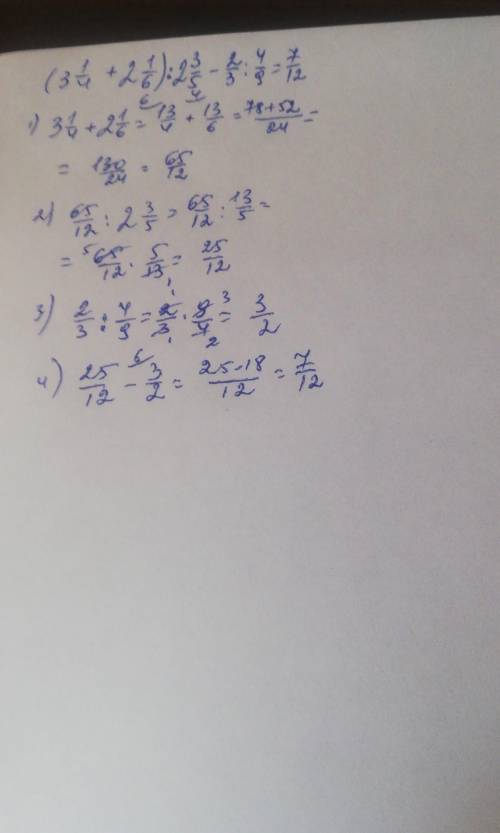 (3 1/4 + 2 1/6) : 2 3/5 - 2/3 : 4/9 = 7/12
1) 3 1/4 + 2 1/6 = 13/4 + 13/6 = 78+52/24 =
= 130/24 = 65/12
2) 65/12 : 2 3/5 = 65/12 : 13/5 =
= 65/12 · 5/13 = 25/12
3) 2/3 : 4/9 = 2/3 · 9/4 = 3/2
4) 25/12 - 3/2 = 25-18/12 = 7/12